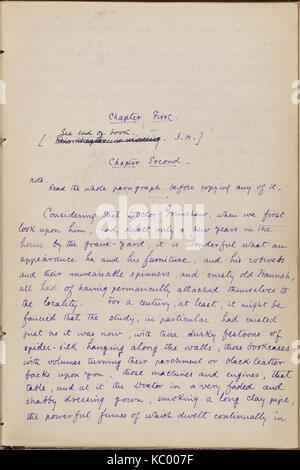 Chapter First.
See end of book.
[ J. H.]
Chapter Second.
Note.
Read the whole paragraph before copying any of it.
Considering that Doctor Grimshaw, when we first
look upon him, had dwelt only a few years in the
house by the grave-yard, it is wonderful what an
appearance he and his furniture, and his cobwebs
and their unweariable spinners, and crusty old Hannah,
all had of having permanently attached themselves to
the locality. For a century, at least, it might be
fancied that the study, in particular, had existed
just as it was now, with those dusky festoons of
spider-silk hanging along the walls, those bookcases
with volumes turning their parchment or black-leather
backs upon you, those machines and engines, that
table, and at it the Doctor in a very faded and
shabby dressing gown, smoking a long clay pipe,
the powerful fumes of which dwelt continually in
alamy
Image ID: KC007F
www.alamy.com